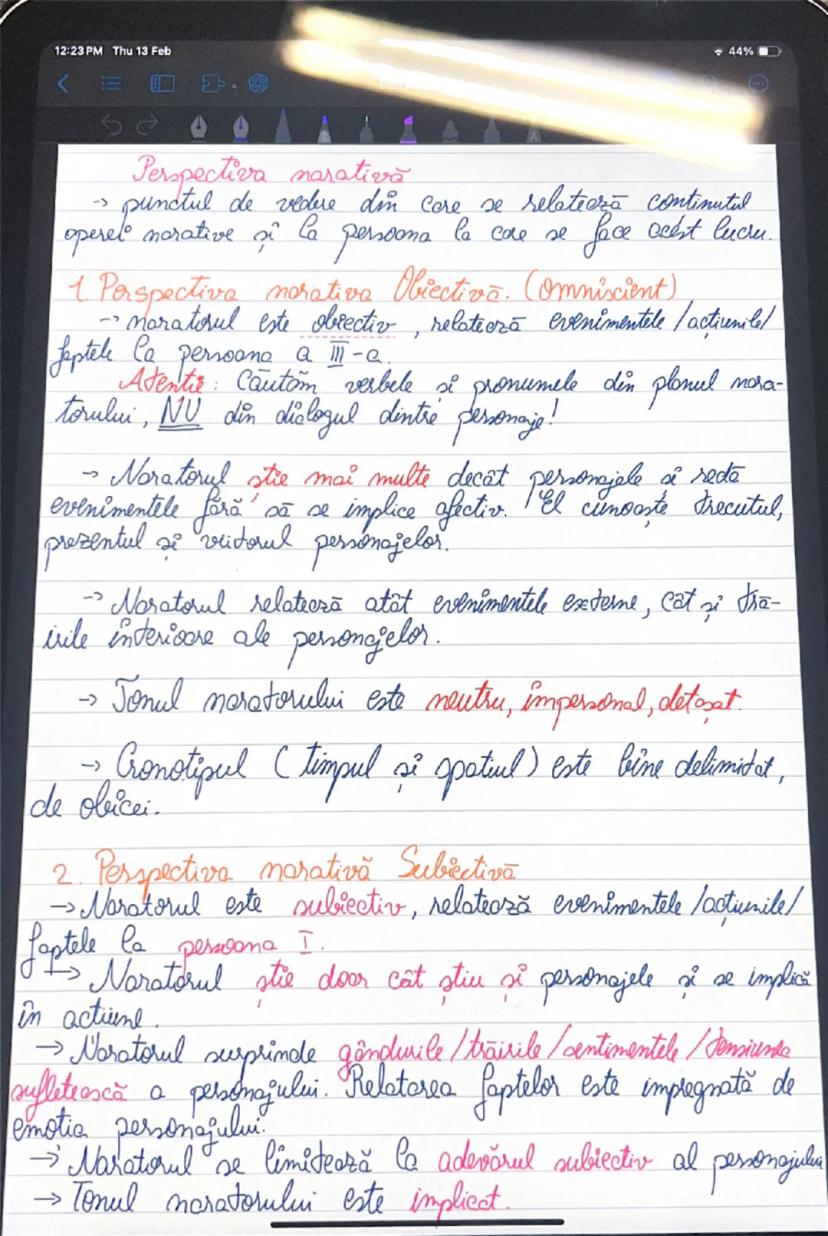 12:23 PM Thu 13 Feb
44%
Perspectiva narativă
→ punctul de vedere din care se relatează continutul
operei narative și la persoana la care se face acest lucru.
1. Perspectiva narativa Obiectivă. (omniscient)
→ naratorul este obiectiv, relatează evenimentele /acțiunile/
faptele la persoana a III-a.
Atentie: Căutăm verbele și pronumele din planul nara-
torului, NU din dialogul dintre personaje!
→ Naratorul știe mai multe decât personajele și redă
evenimentele fără să se implice afectiv. El cunoaște trecutul,
prezentul și viitorul personajelor.
→ Naratorul relatează atât evenimentele externe, cât și tră-
irile interioare ale personajelor.
→ Tonul naratorului este neutru, impersonal, detașat.
→ Cronotipul (timpul și spatiul) este bine delimitat,
de obicei.
2. Perspectiva narativă Subiectivă
→ Naratorul este subiectiv, relatează evenimentele /acțiunile/
faptele la persoana I.
→ Naratorul știe doar cât știu și personajele și se implică
în actiune.
→ Naratorul surprinde gândurile /trăirile /sentimentele /tensiunea
sufletească a personajului. Relatarea faptelor este impregnată de
emotia personajului.
→ Naratorul se limitează la adevărul subiectiv al personajului
→ Tonul naratorului este implicat.